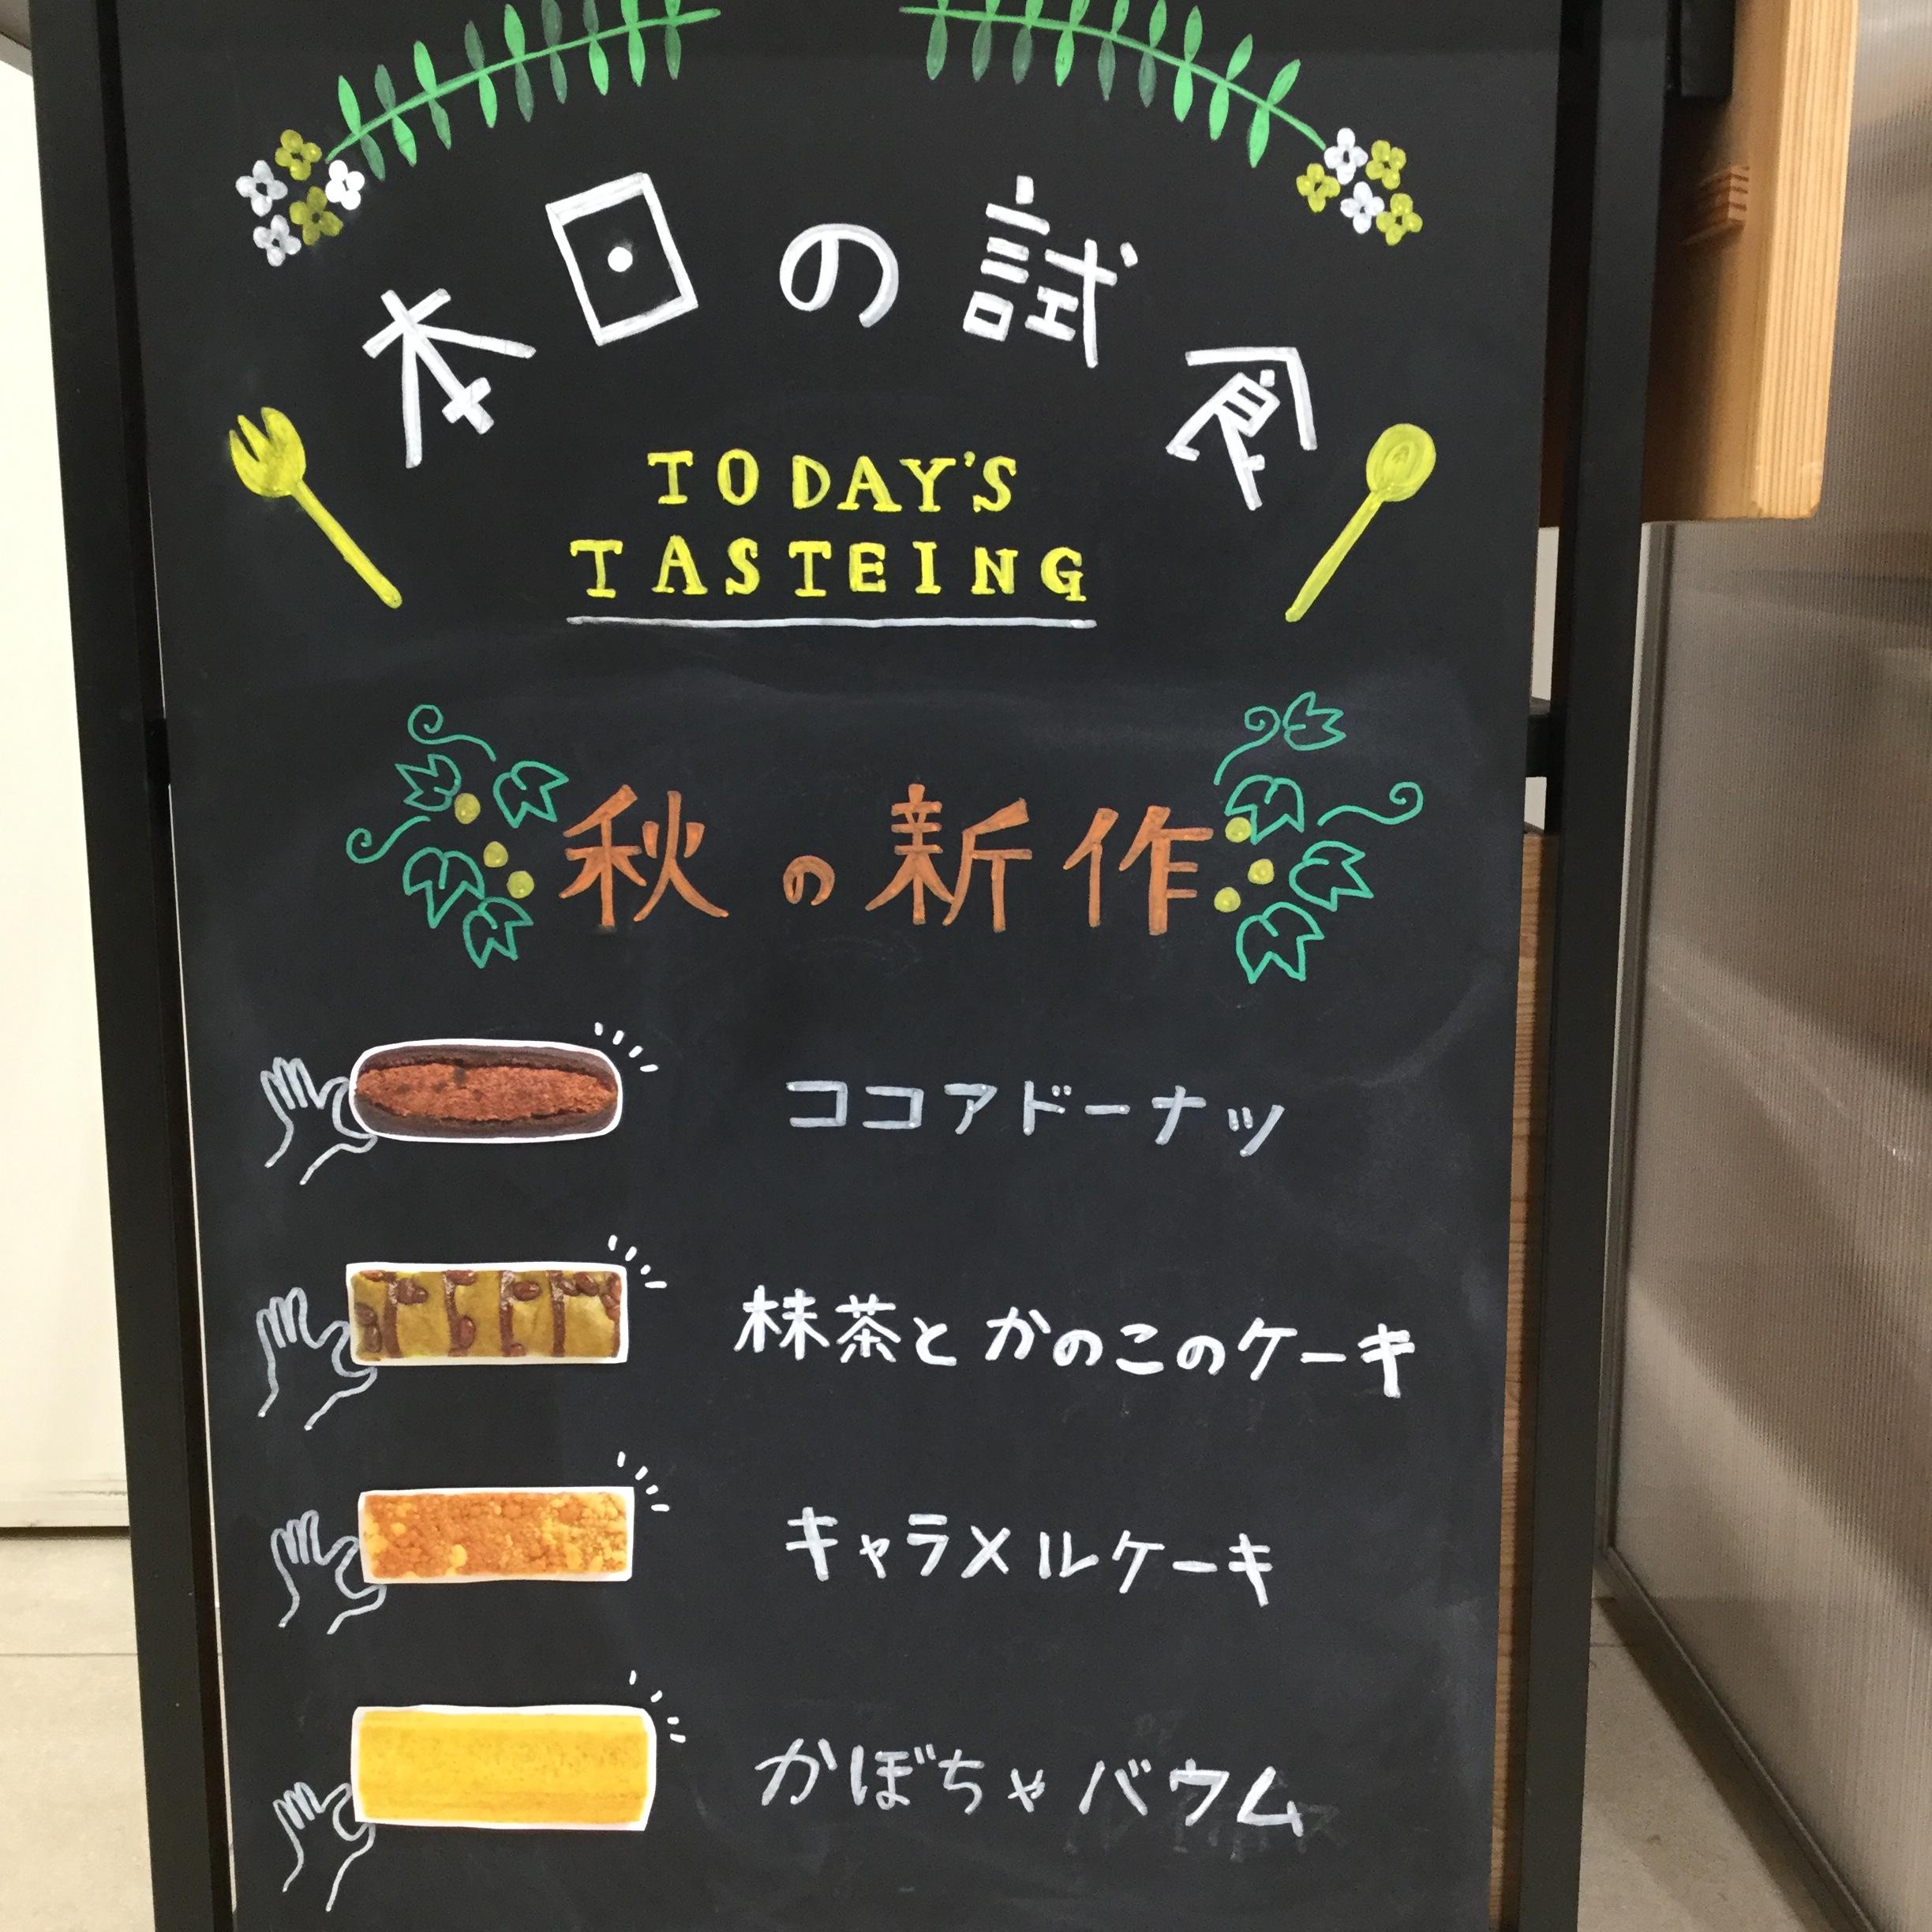 本日の試食
TODAY'S
TASTEING
秋の新作
ココアドーナツ
抹茶とかのこのケーキ
キャラメルケーキ
かぼちゃバウム